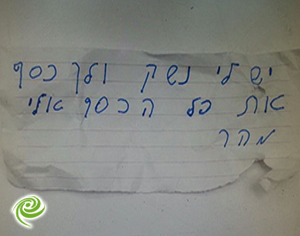 יש לי נשק ולך כסף
את כל הכסף אלי
מהר